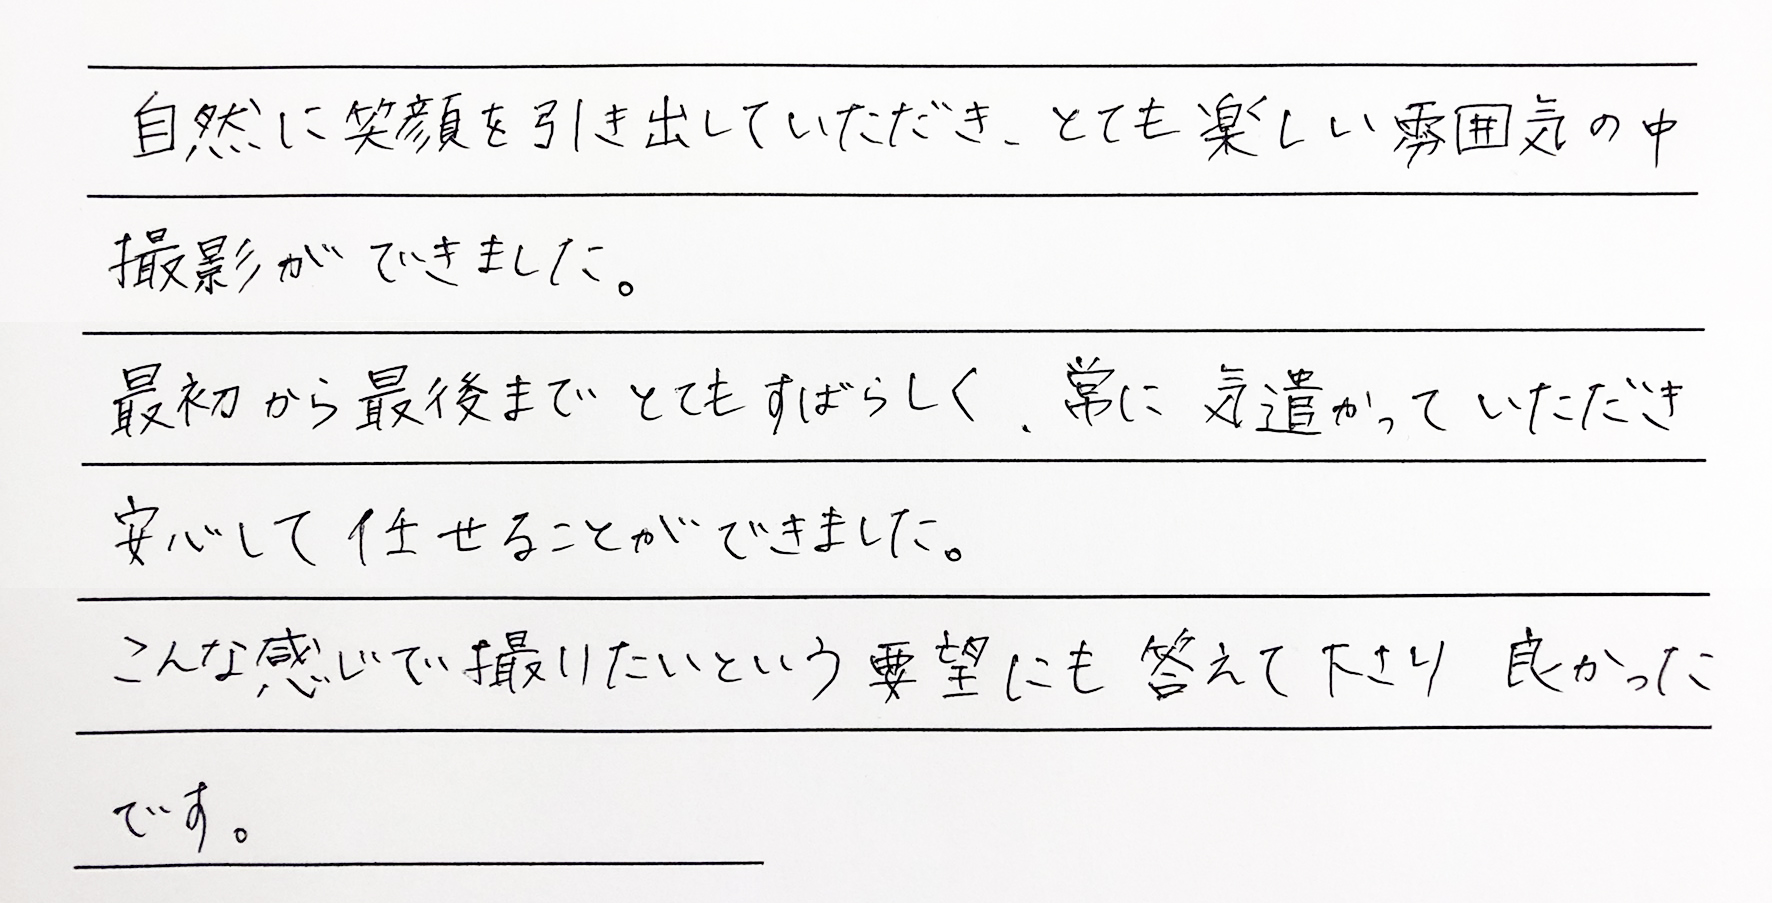 自然に笑顔を引き出していただき、とても楽しい雰囲気の中
撮影ができました。
最初から最後までとてもすばらしく、常に気遣かっていただき
安心して任せることができました。
こんな感じで撮りたいという要望にも答えて下さり良かった
です。